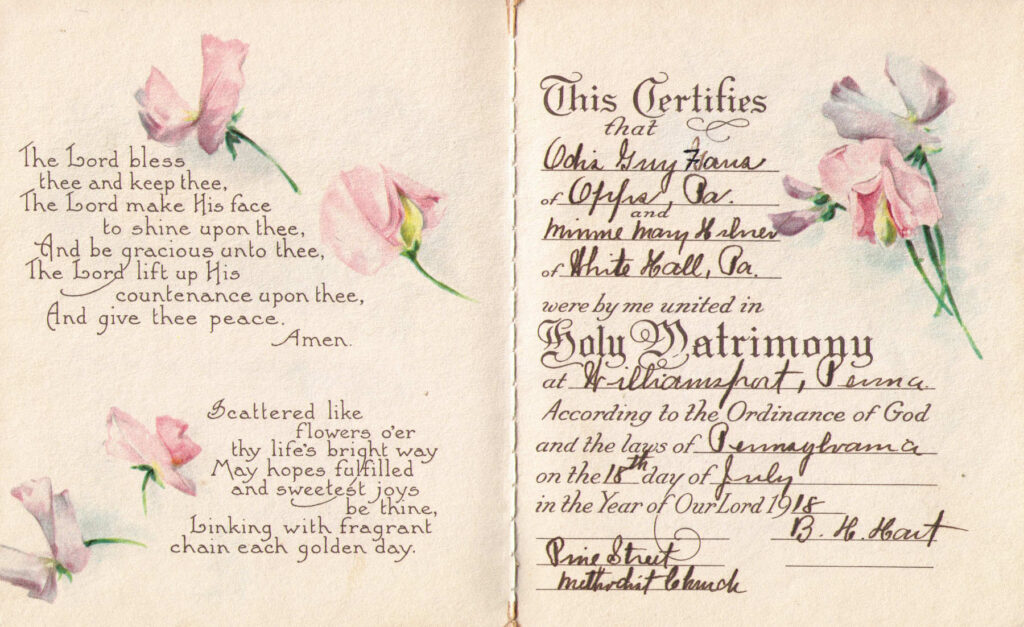 The Lord bless
thee and keep thee,
The Lord make His face
to shine upon thee,
And be gracious unto thee,
The Lord lift up His
countenance upon thee,
And give thee peace.
Amen.
Scattered like
flowers o'er
thy life's bright way
May hopes fulfilled
and sweetest joys
be thine,
Linking with fragrant
chain each golden day.
This Certifies
that
Odis Guy
of Opps, Pa.
and
Minnie Mary Hilner
of White Hall, Pa.
were by me united in
Holy Matrimony
at Williamsport, Penna.
According to the Ordinance of God
and the laws of Pennsylvania
on the 18th day of July
in the Year of Our Lord 1918
B. H. Hart
Pine Street
Methodist Church